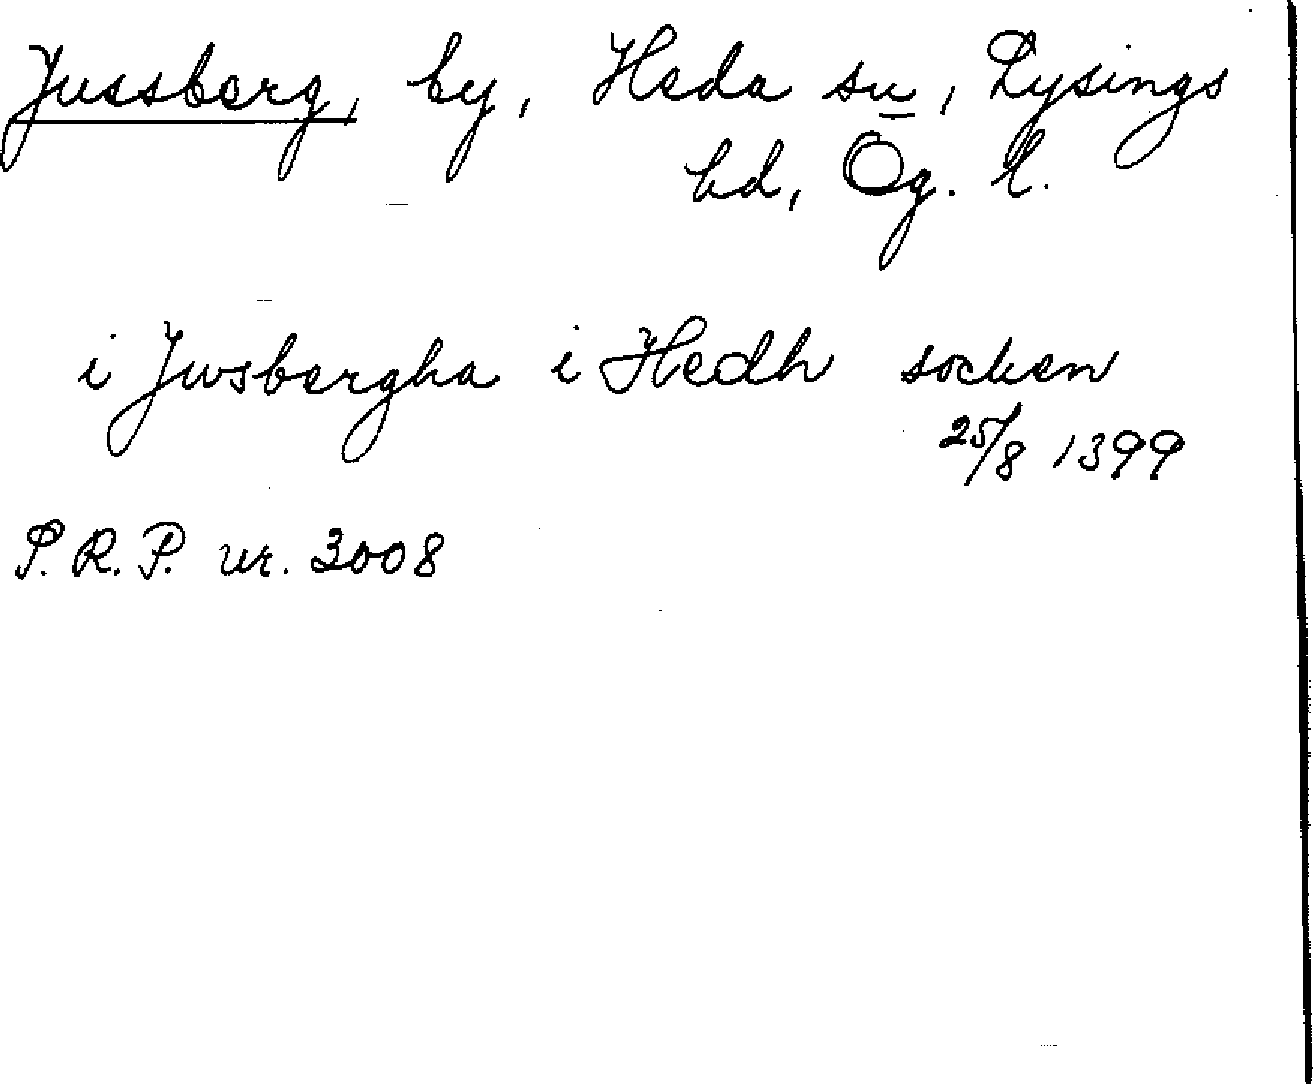 Jussberg, by, Heda sn, Lysings
hd, Ög. l.
i Jwsbergha i Hedh socken
25/8 1399
P.R.P. nr. 3008